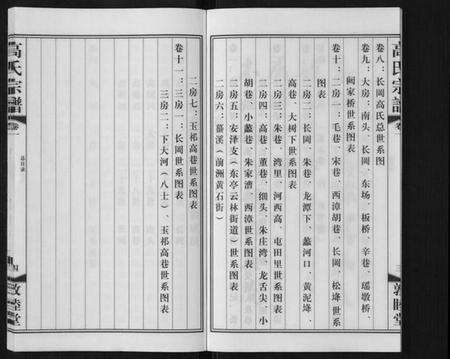 高氏宗譜
卷一
敦睦堂
卷八：长岡高氏总世系图
卷九：大房：南头、长岡、东场、板桥、辛巷、瑶墩桥、
阚家桥世系图表
卷十：二房一：毛巷、宋巷、西漳胡巷、长岡、松埄世系
图表
二房二：长岡、朱巷、龙潭下、蠡河口、黄泥埄、
高巷、大树下世系图表
二房三：朱巷、湾里、河西高、屯田里世系图表
二房四：高巷、董巷、细头、朱庄湾、龙舌尖、小
胡巷、小蠡巷、朱家漕、西漳世系图表
二房五：安泽支（东亭云林街道）世系图表
二房六：葑溪（前洲黄石街）
二房七：玉祁高巷世系图表
卷十一：三房一：长岡世系图表
三房二：下大河（八士）、玉祁高巷世系图表
高氏宗譜
卷一
总目录
四
敦睦堂